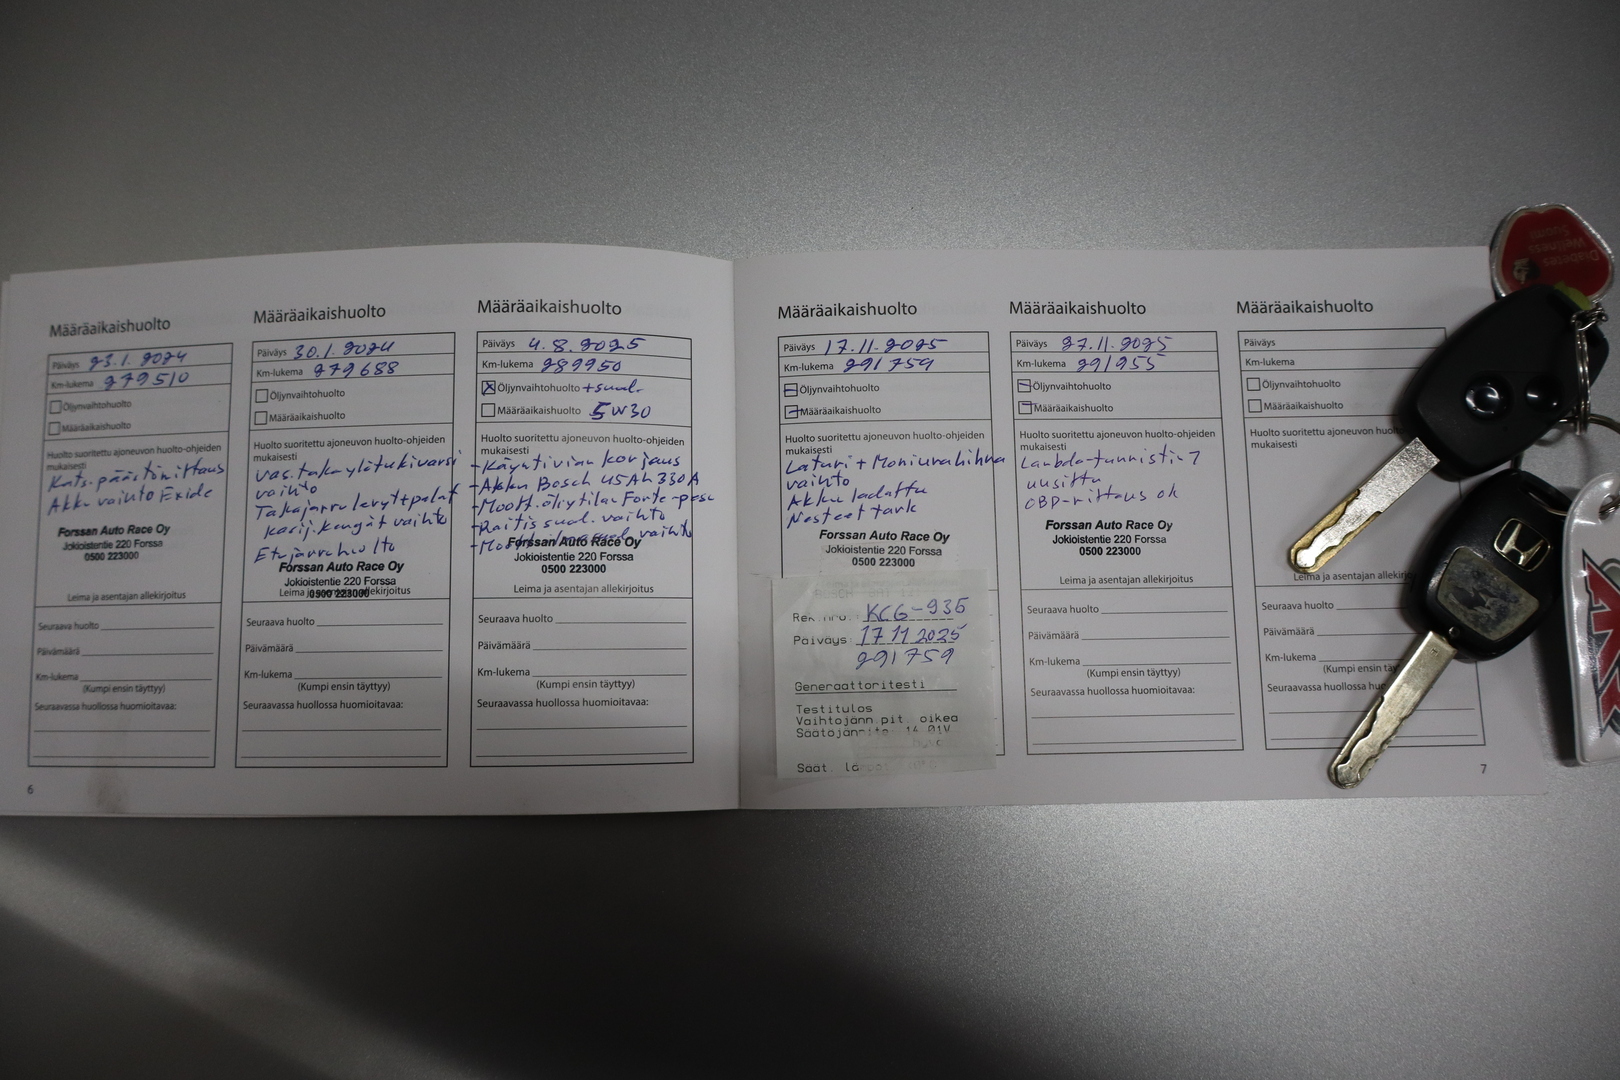 Määräaikaishuolto
Päiväys 23.1.2024
Km-lukema 279510
Öljynvaihtohuolto
Määräaikaishuolto
Huolto suoritettu ajoneuvon huolto-ohjeiden
mukaisesti
Kats.päästömittaus
Akku vaihto Exide
Forssan Auto Race Oy
Jokioistentie 220 Forssa
0500 223000
Leima ja asentajan allekirjoitus
Seuraava huolto
Päivämäärä
Km-lukema
(Kumpi ensin täyttyy)
Seuraavassa huollossa huomioitavaa:
6
Määräaikaishuolto
Päiväys 30.1.2024
Km-lukema 279688
Öljynvaihtohuolto
Määräaikaishuolto
Huolto suoritettu ajoneuvon huolto-ohjeiden
mukaisesti
Vas.taka ylätukivarsi
vaihto
Takajarru levyt+palat
käsij.kengät vaihto
Etujarruhuolto
Forssan Auto Race Oy
Jokioistentie 220 Forssa
Leima ja asentajan allekirjoitus
0500 223000
Seuraava huolto
Päivämäärä
Km-lukema
(Kumpi ensin täyttyy)
Seuraavassa huollossa huomioitavaa:
Määräaikaishuolto
Päiväys 4.8.2025
Km-lukema 289950
Öljynvaihtohuolto +suod.
Määräaikaishuolto 5W30
Huolto suoritettu ajoneuvon huolto-ohjeiden
mukaisesti
-Käyntivian korjaus
-Akku Bosch 45Ah 330A
-Moott.öljytilan Forte-pesu
-Raitis suod. vaihto
-Moott. vaihto
Forssan Auto Race Oy
Jokioistentie 220 Forssa
0500 223000
Leima ja asentajan allekirjoitus
Seuraava huolto
Päivämäärä
Km-lukema
(Kumpi ensin täyttyy)
Seuraavassa huollossa huomioitavaa:
Määräaikaishuolto
Päiväys 17.11.2025
Km-lukema 291759
Öljynvaihtohuolto
Määräaikaishuolto
Huolto suoritettu ajoneuvon huolto-ohjeiden
mukaisesti
Laturi + Moniurahihna
vaihto
Akku ladattu
Nesteet tark
Forssan Auto Race Oy
Jokioistentie 220 Forssa
0500 223000
Rek.nro.: KCG-935
Päiväys 17 11 2025
291759
Generaattoritesti
Testitulos
Vaihtojänn.pit. oikea
Säätöjännite: 14.01V
hyvä
Säät.
Määräaikaishuolto
Päiväys 27.11.2025
Km-lukema 291955
Öljynvaihtohuolto
Määräaikaishuolto
Huolto suoritettu ajoneuvon huolto-ohjeiden
mukaisesti
Lambda-tunnistin 1
uusittu
OBD-mittaus ok
Forssan Auto Race Oy
Jokioistentie 220 Forssa
0500 223000
Leima ja asentajan allekirjoitus
Seuraava huolto
Päivämäärä
Km-lukema
(Kumpi ensin täyttyy)
Seuraavassa huollossa huomioitavaa:
Määräaikaishuolto
Päiväys
Km-lukema
Öljynvaihtohuolto
Määräaikaishuolto
Huolto suoritettu ajoneuvon huolto-
mukaisesti
Leima ja asentajan allekirj
Seuraava huolto
Päivämäärä
Km-lukema
(Kumpi ensin tä
Seuraavassa huollossa huom
7
Diabetes
Wellness
Suomi